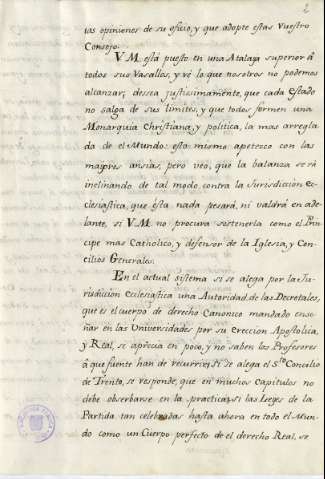 2
las opiniones de su oficio, y que adopte estas Vuestro
Consejo.
V. M. está puesto en una Atalaya superior â
todos sus Vasallos, y vé lo que nosotros no podemos
alcanzar; desea justisimamente, que cada Estado
no salga de sus limites, y que todos formen una
Monarquia Christiana, y politica, la mas arregla
da de el Mundo: esto mismo apetezco con las
mayores ansias, pero veo, que la balanza se vá
inclinando de tal modo, contra la Jurisdicción Ec-
clesiastica, que ésta nada pesará, ni valdrá en ade-
lante, si V. M. no procura sostenerla como el Prin
cipe mas Catholico, y defensor de la Iglesia, y Con
cilios Generales.
En el actual sistema si se alega por la Ju-
risdiccion Ecclesiastica una Autoridad de las Decretales,
que es el cuerpo de derecho Canonico mandado ense-
ñar en las Universidades por su ereccion Apostolica,
y Real, se aprecia en poco, y no saben los Profesores
â que fuente han de recurrir; Si se alega el Sto. Concilio
de Trento, se responde, que en muchos Capitulos no
debe observarse en la practica; si las Leyes de la
Partida tan celebradas hasta ahora en todo el Mun-
do como un Cuerpo perfecto de el derecho Real, se